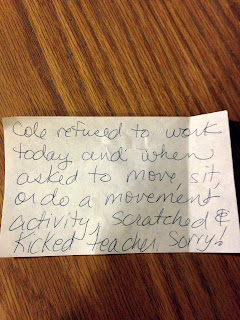 Cole refused to work
today and when
asked to move, sit,
or do a movement
activity, scratched &
kicked teacher. Sorry!